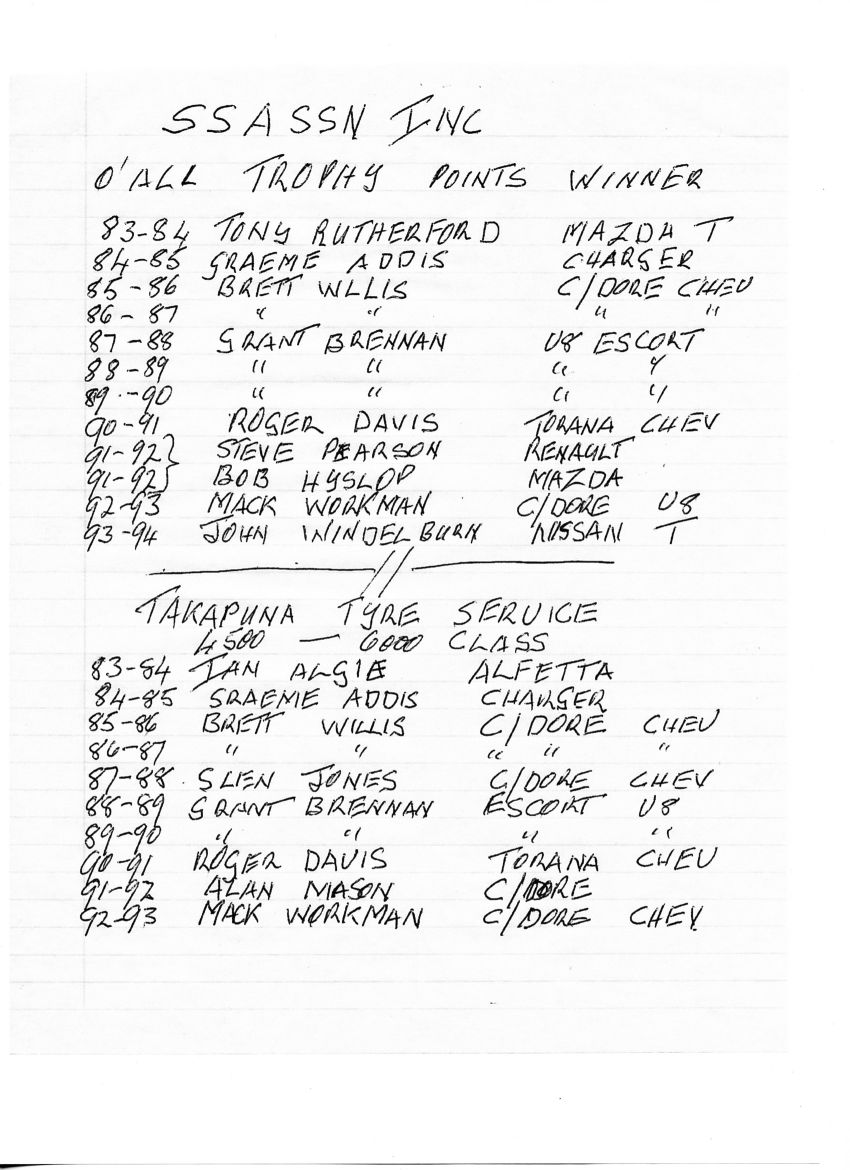 SSASSN INC
O'ALL TROPHY POINTS WINNER
83-84 TONY RUTHERFORD MAZDA T
84-85 GRAEME ADDIS CHARGER
85-86 BRETT WLLIS C/DORE CHEV
86-87 " " " "
87-88 GRANT BRENNAN V8 ESCORT
88-89 " " " "
89-90 " " " "
90-91 ROGER DAVIS TORANA CHEV
91-92} STEVE PEARSON RENAULT
91-92} BOB HYSLOP MAZDA
92-93 MACK WORKMAN C/DORE V8
93-94 JOHN WINDELBURN NISSAN T
//
TAKAPUNA TYRE SERVICE
4500 — 6000 CLASS
83-84 IAN ALGIE ALFETTA
84-85 GRAEME ADDIS CHARGER
85-86 BRETT WILLIS C/DORE CHEV
86-87 " " " " "
87-88 GLEN JONES C/DORE CHEV
88-89 GRANT BRENNAN ESCORT V8
89-90 " " " "
90-91 ROGER DAVIS TORANA CHEV
91-92 ALAN MASON C/DORE
92-93 MACK WORKMAN C/DORE CHEV